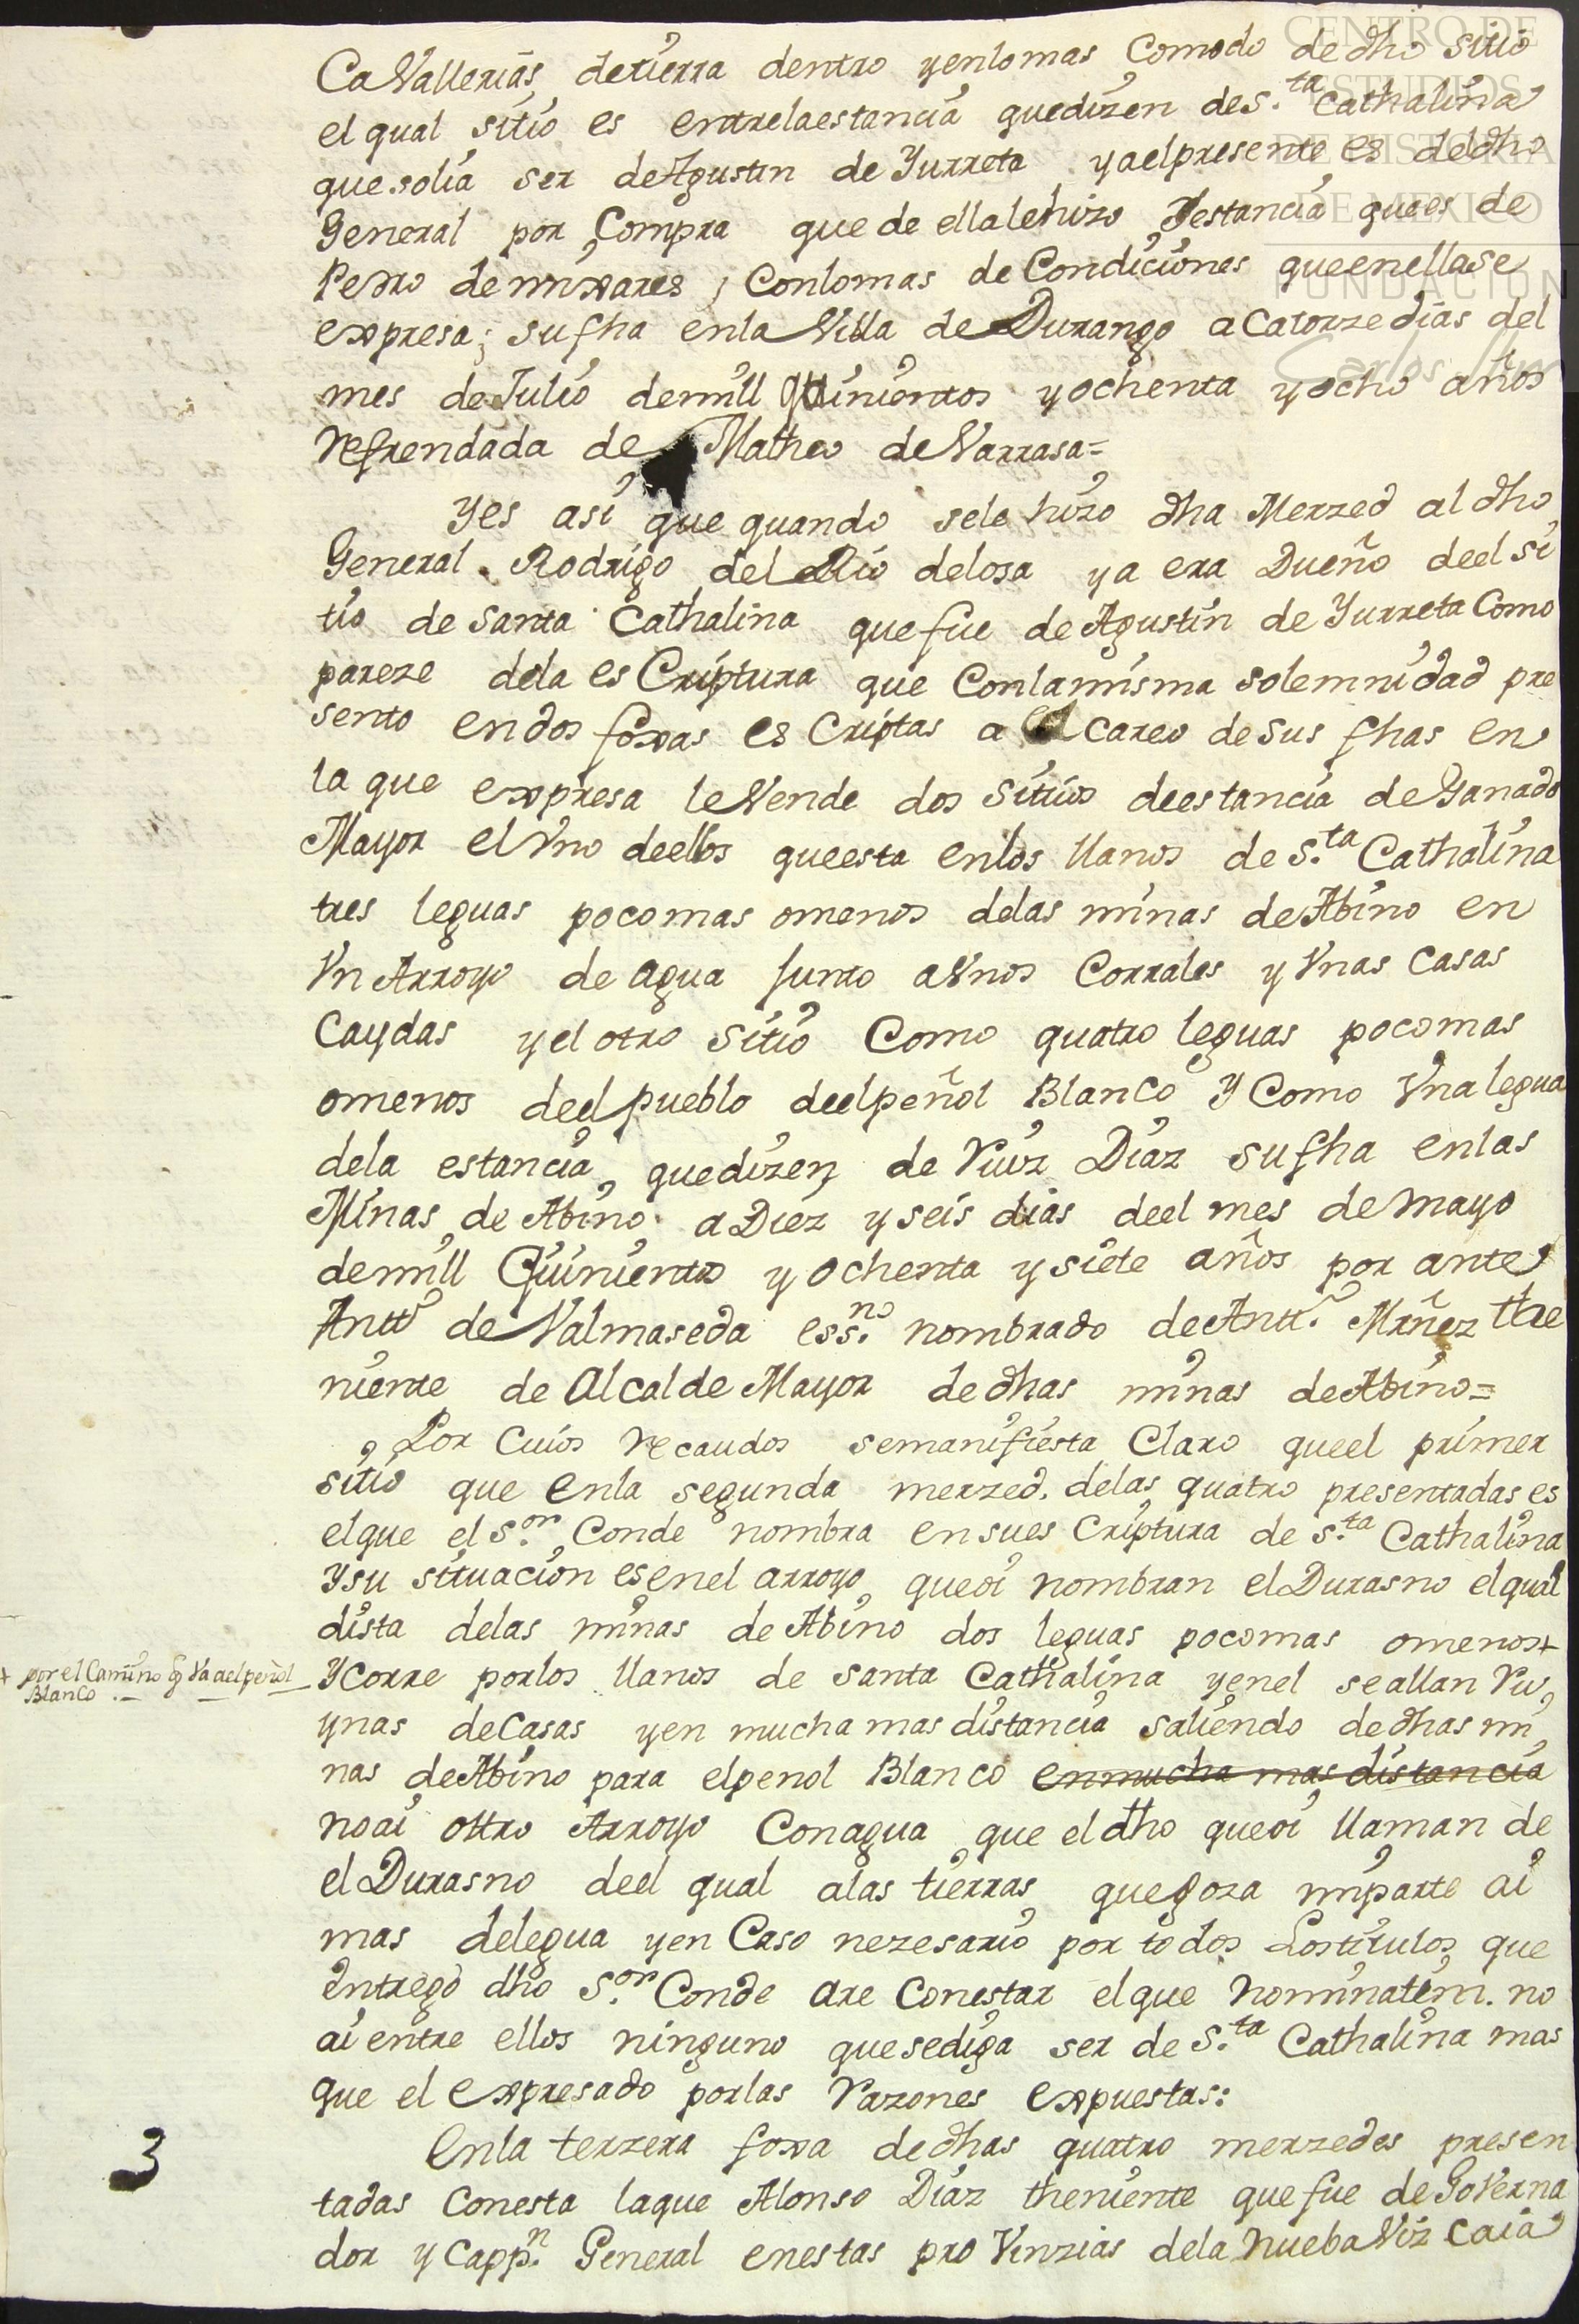 CENTRO DE
ESTUDIOS
DE HISTORIA
DE MEXICO
FUNDACIÓN
Carlos Slim
CaVallerias detierra dentro yenlomas Comodo dedho sitio
el qual sitio es entrelaestancia quedizen deS.ta Cathalina
quesolia ser deAgustin de Yurreta yaelpresente es deldho
General por Compra que de ellalehizo Yestancia quees de
Pedro de mixares; Conlomas de Condiciones queenellase
expresa; sufha enla Villa de Durango acatorzedias del
mes deJulio demill Quinientos yochenta yocho años
Refrendada de Matheo deVarrasa=
Yes asi que quando sele hizo dha Merzed aldho
General Rodrigo del Rio delosa ya era Dueño deelsi
tio de Santa Cathalina quefue de Agustin de Yurreta Como
pareze dela esCriptura que Conlamisma solemnidad pre
sento endos foxas esCriptas a el careo desus fhas en
la que expresa leVende dos Sitios deestancia deGanado
Mayor elVno deellos queesta enlos llanos de S.ta Cathalina
tres leguas pocomas omenos delas minas deAbino en
Vn Arroyo de agua Junto aVnos Corrales y Vnas Casas
Caydas yel otro Sitio Como quatro leguas pocomas
omenos deelpueblo deelpeñol Blanco Y Como Vnalegua
dela estancia quedizen de Ruiz Diaz sufha enlas
Minas de Abino a Diez yseis dias deel mes demayo
demill Quinientos yochenta ysiete años por ante
Antto de Valmaseda ess.no nombrado deAntt.o Mrñez the
niente de Alcalde Mayor dedhas minas deAbino=
Por Cuios Recaudos semanifiesta Claro queel primer
sitio que enla segunda merzed. delas quatro presentadas es
elque el S.or Conde nombra ensuesCriptura de S.ta Cathalina
Ysu situacion esenel arroyo queoi nombran elDurasno elqual
dista delas minas de Abino dos leguas pocomas omenos+
+ por el Camino q Va aelpeñol
Blanco .-
YCorre porlos llanos de santa Cathalina yenel seallan Ru,
ynas decasas yen mucha mas distancia saliendo dedhas mi,
nas deAbino para elpenol Blanco enmucha mas distancia
noai ottro Arroyo Conagua que el dho queoi llaman de
el Durasno deel qual alas tierras quegoza miparte ai
mas delegua yen Caso nezesario por todos Lostitulos que
entrego dho S.or Conde are Constar elque Nominatim. no
ai entre ellos ninguno quesediga ser de S.ta Cathalina mas
que el expresado porlas Razones expuestas:
3
Enla terzera foxa dedhas quatro merzedes presen
tadas Conesta laque Alonso Diaz theniente que fue deGoVerna
dor y Capp.n General enestas proVinzias dela Nueba Viz Caia